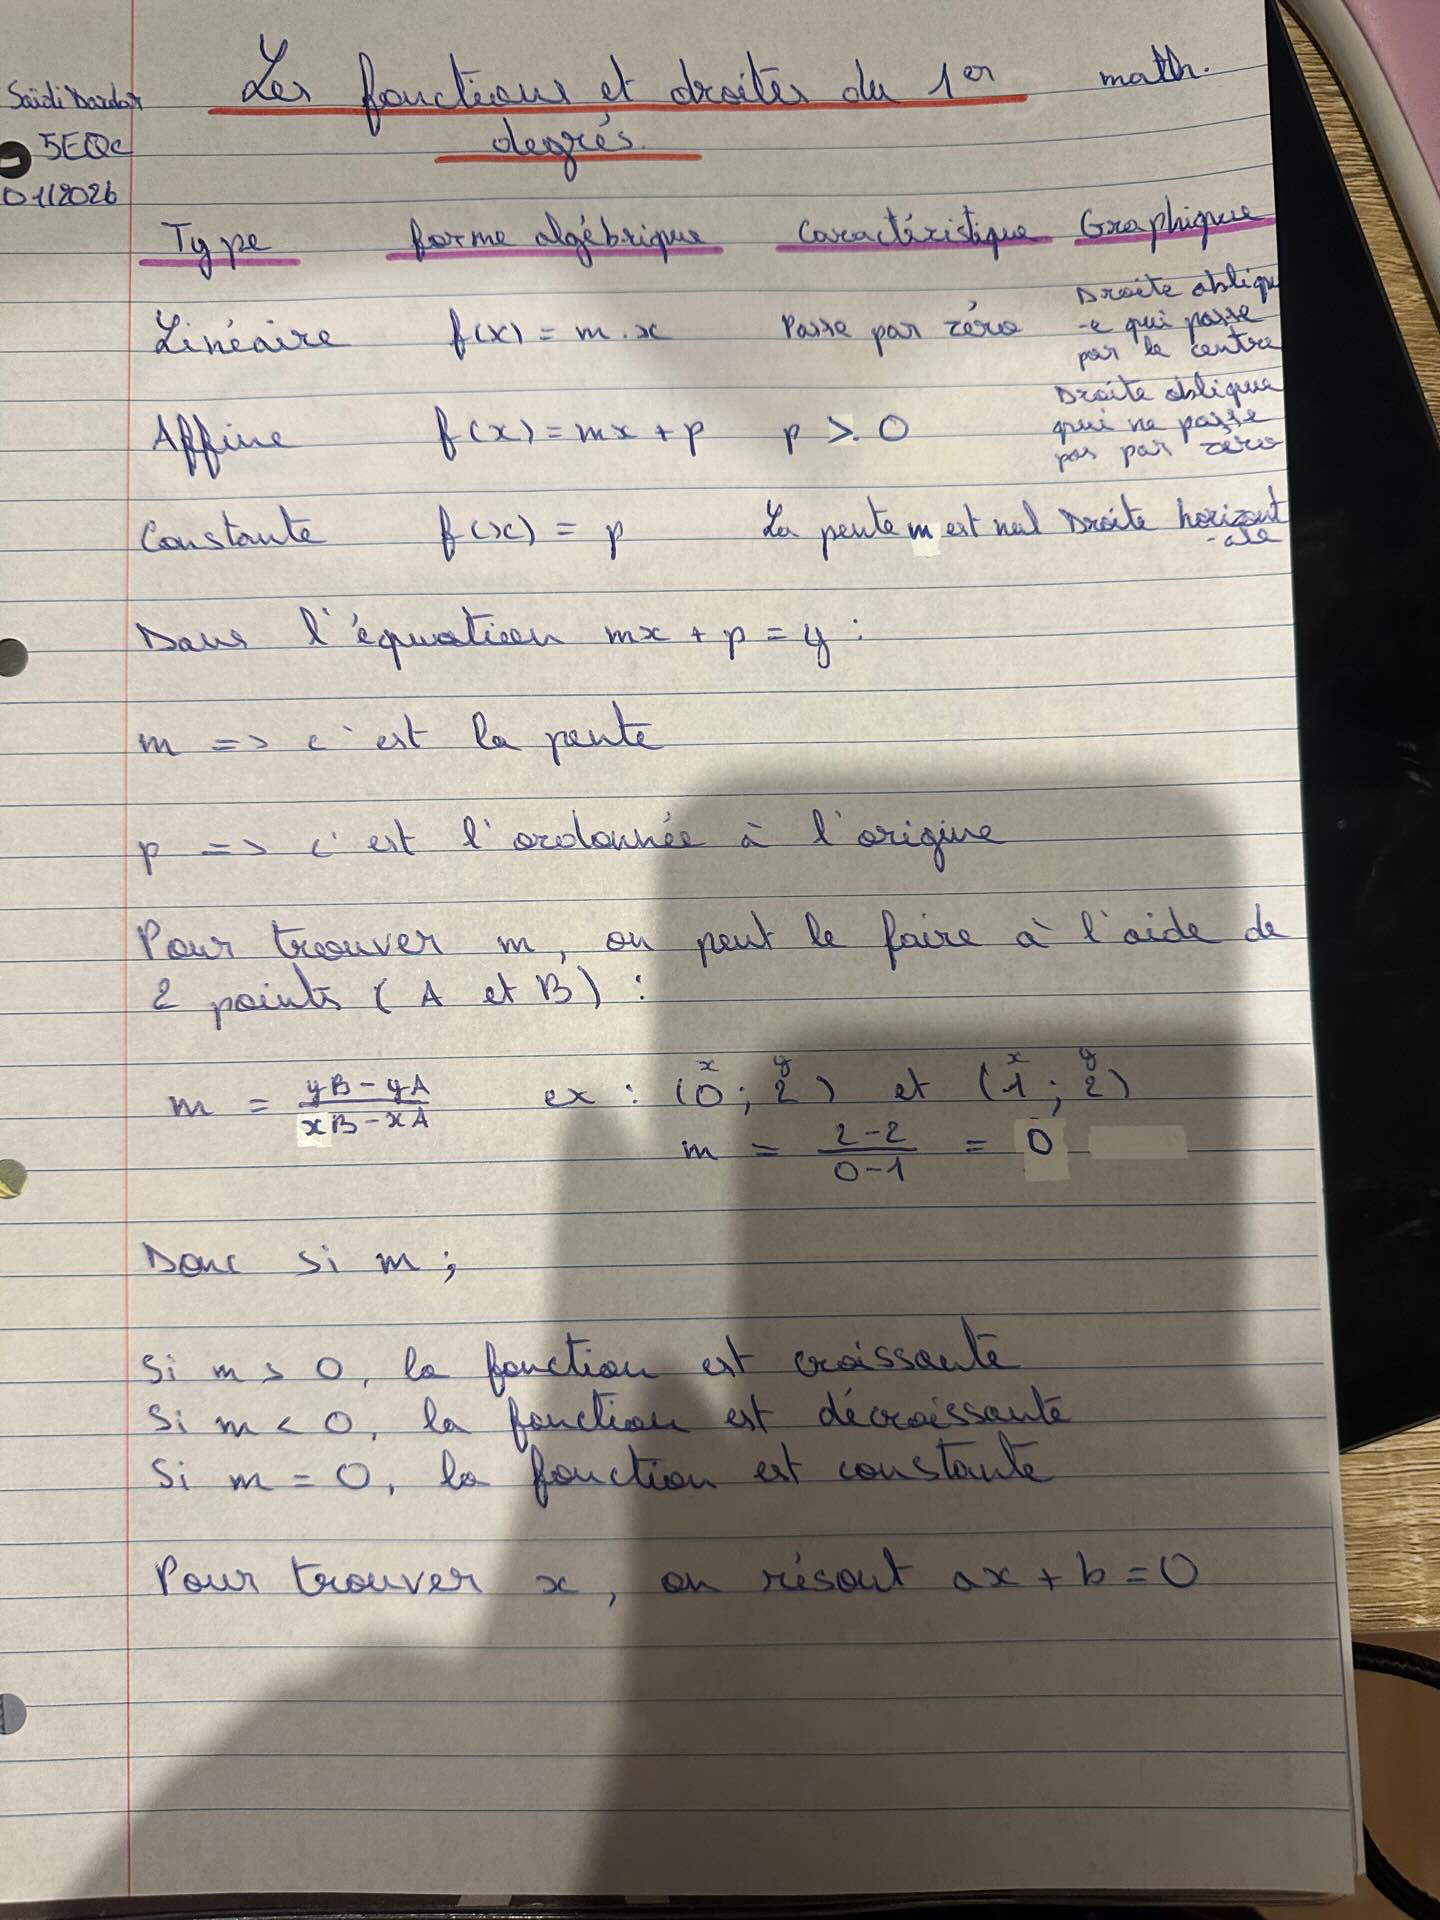 Les fonctions et droites du 1er math.
degrés.
Saidi
5EQc
01/2026
Type forme algébrique Caractéristique Graphique
Linéaire f(x) = m . x Passe par zéro Droite obliqu
-e qui passe
par le centre
Affine f(x) = mx + p p > 0 Droite oblique
qui ne passe
pas par zéro
Constante f(x) = p La pente m est nul Droite horizont
-ale
Dans l'équation mx + p = y :
m => c'est la pente
p => c'est l'ordonnée à l'origine
Pour trouver m, on peut le faire à l'aide de
2 points ( A et B ) :
x y x y
m = yB - yA / xB - xA ex : (0 ; 2) et (1 ; 2)
m = 2-2 / 0-1 = 0
Donc si m ;
Si m > 0, la fonction est croissante
Si m < 0, la fonction est décroissante
Si m = 0, la fonction est constante
Pour trouver x, on résout ax + b = 0